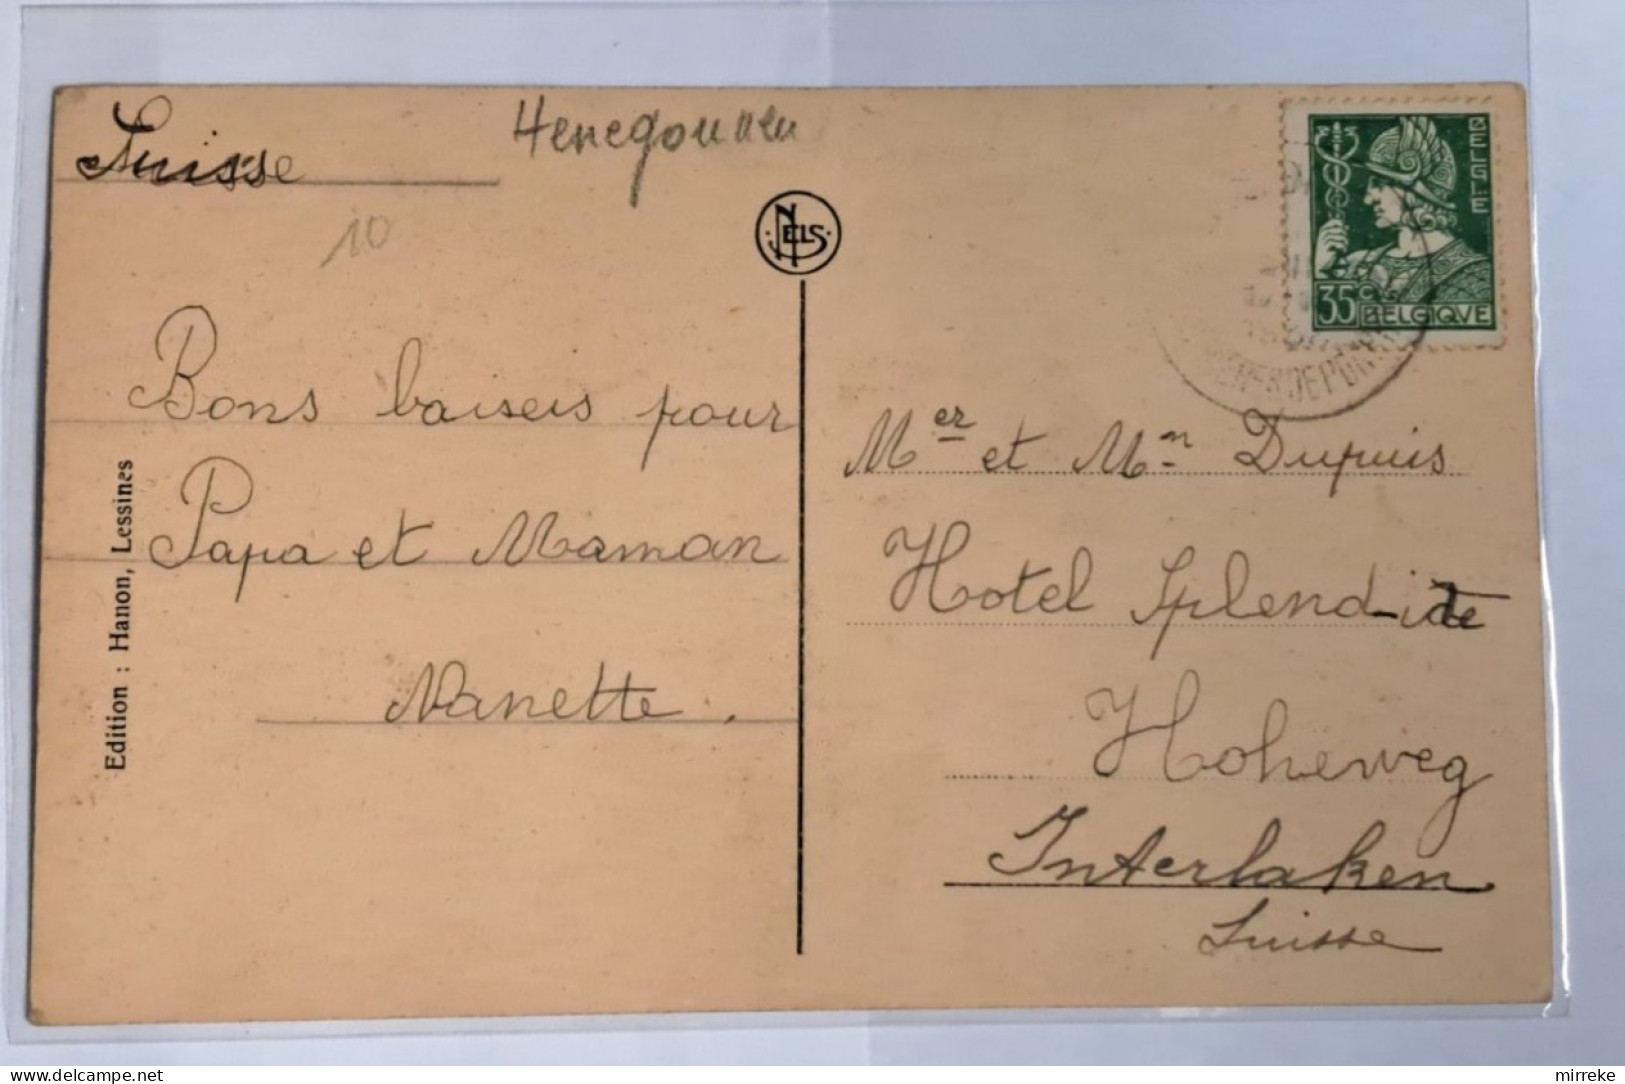 Suisse
Henegouwen
10
NELS
BELGIE
35 Cs
BELGIQUE
Bons baisers pour
Papa et Maman
Nanette.
Edition : Hanon, Lessines
Mer et Mm Dupuis
Hotel Splendide
Hoheweg
Interlaken
Suisse
mirreke